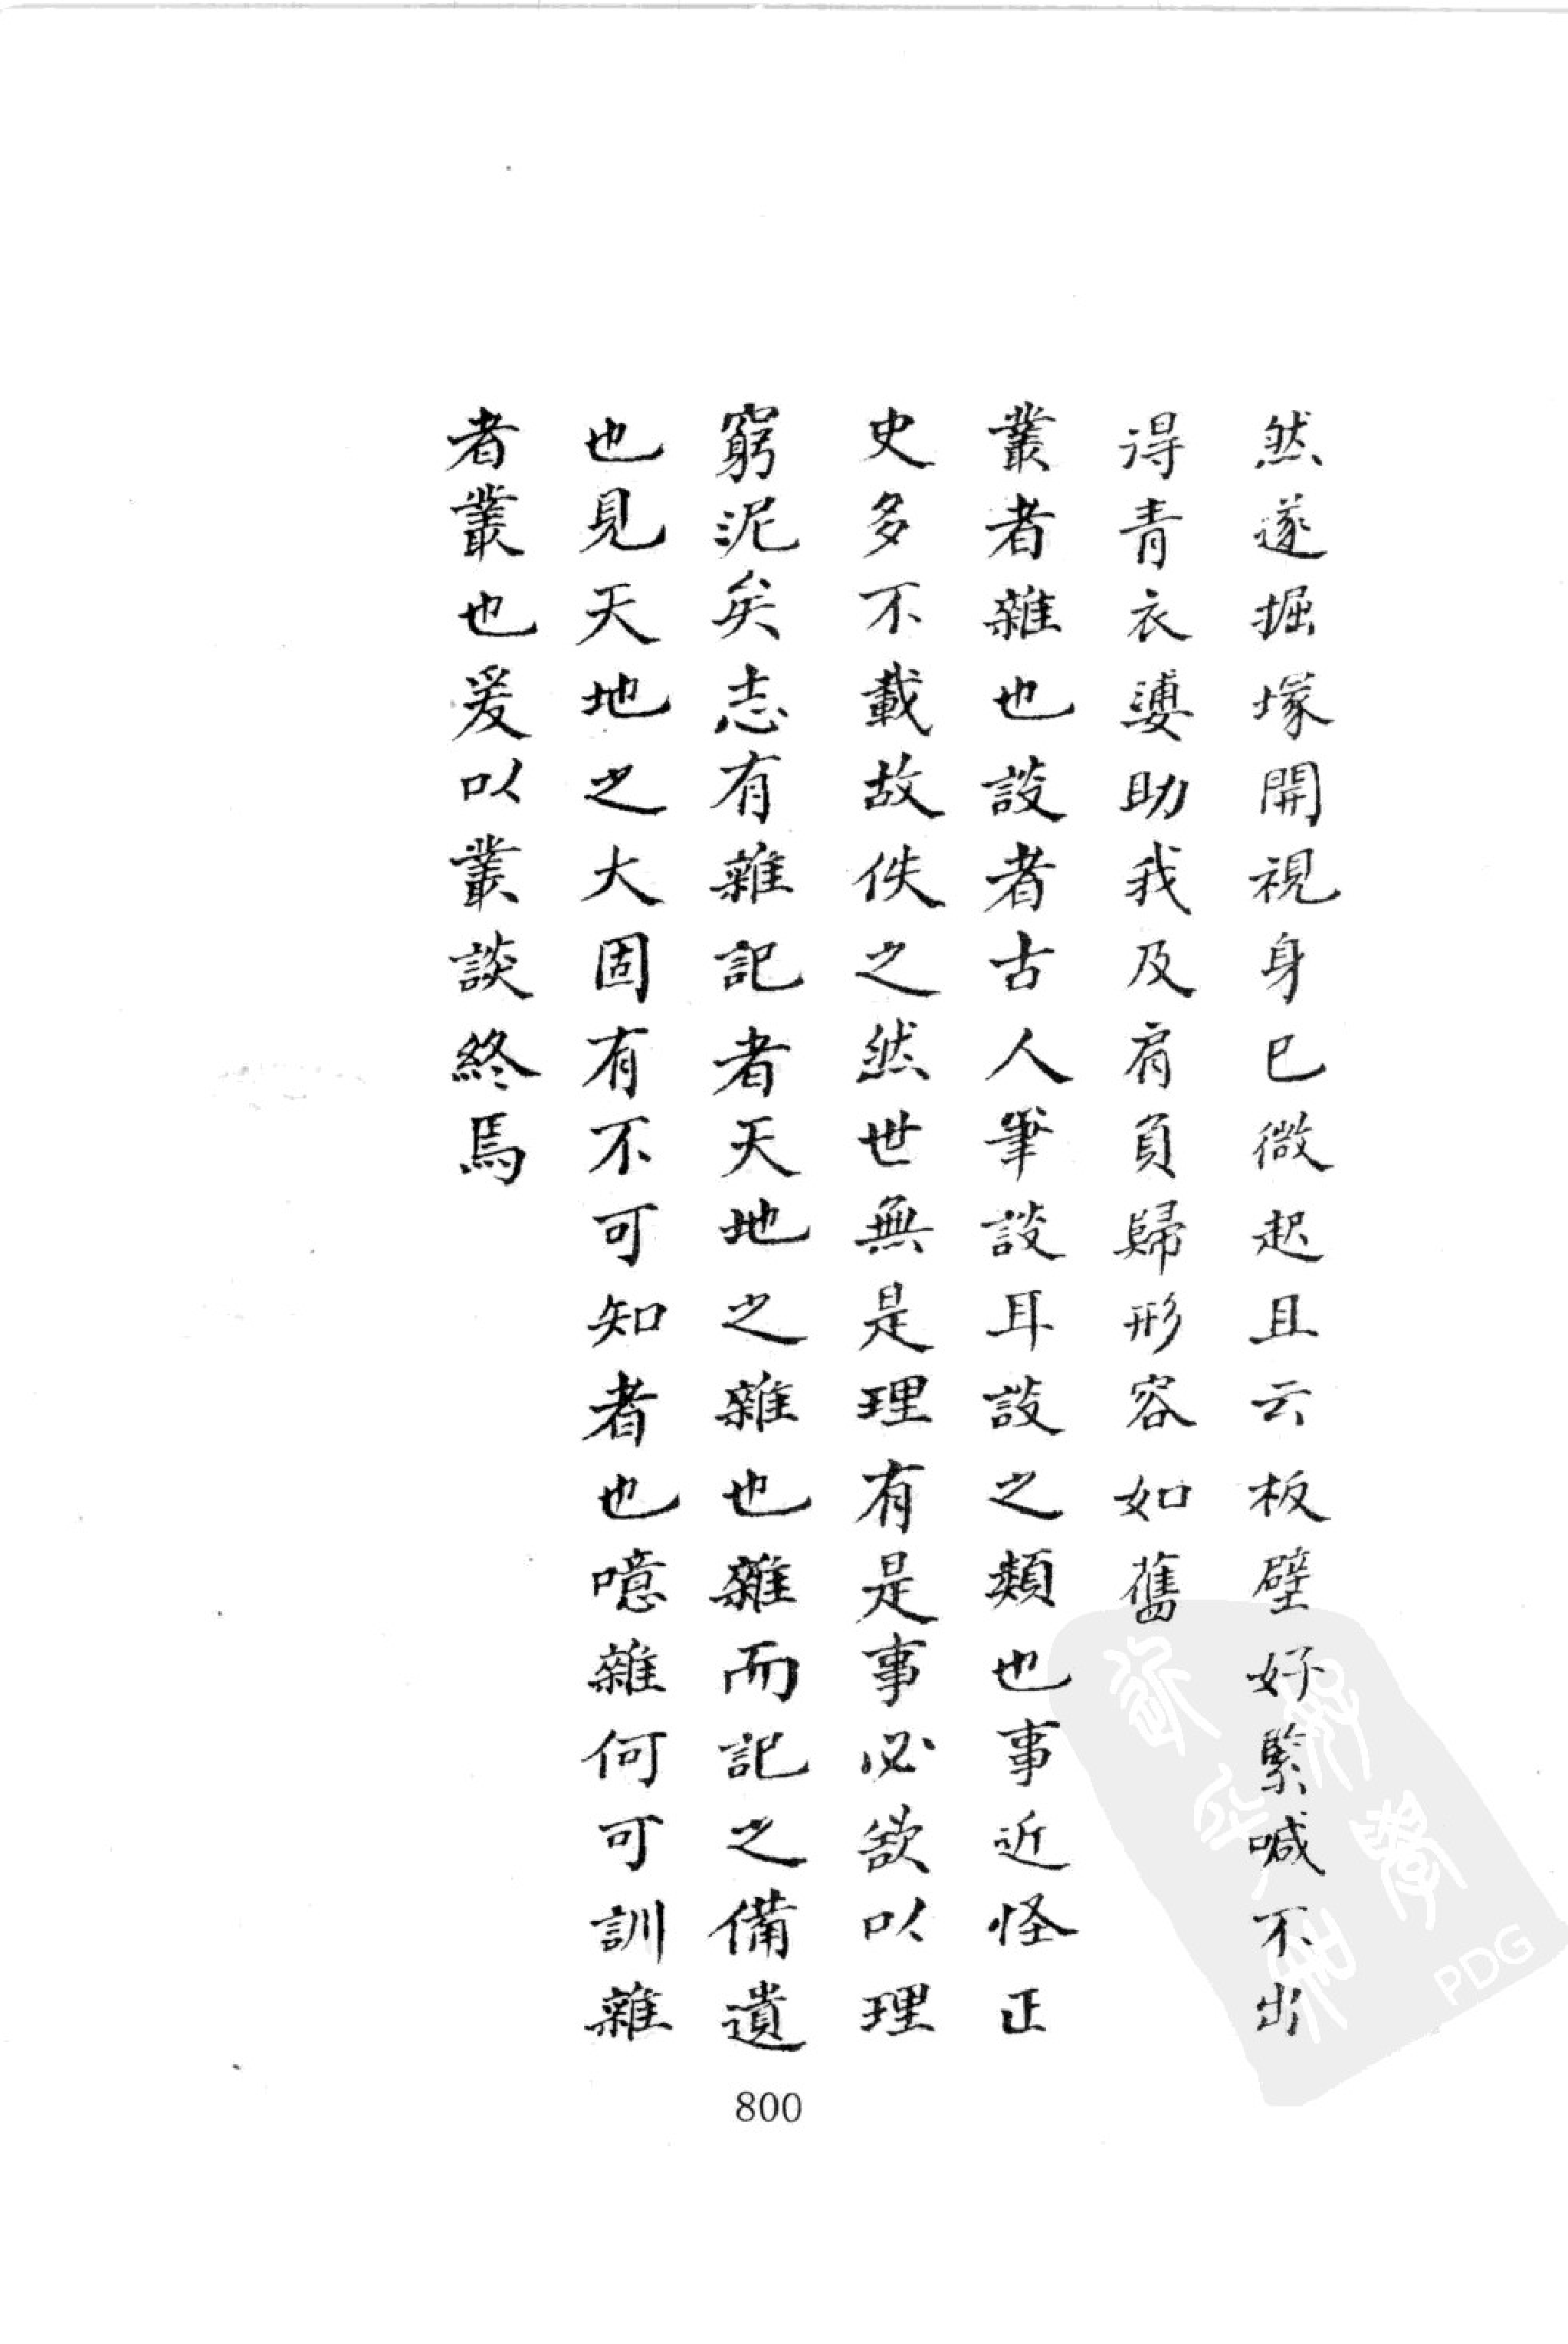 然遂掘塚開視身已微起且云板壁好緊喊不出
得青衣婆助我及肩負歸形容如舊
叢者雜也談者古人筆談耳談之類也事近怪正
史多不載故佚之然世無是理有是事必欲以理
窮泥矣志有雜記者天地之雜也雜而記之備遺
也見天地之大固有不可知者也噫雜何可訓雜
者叢也爰以叢談終焉
800
PDG